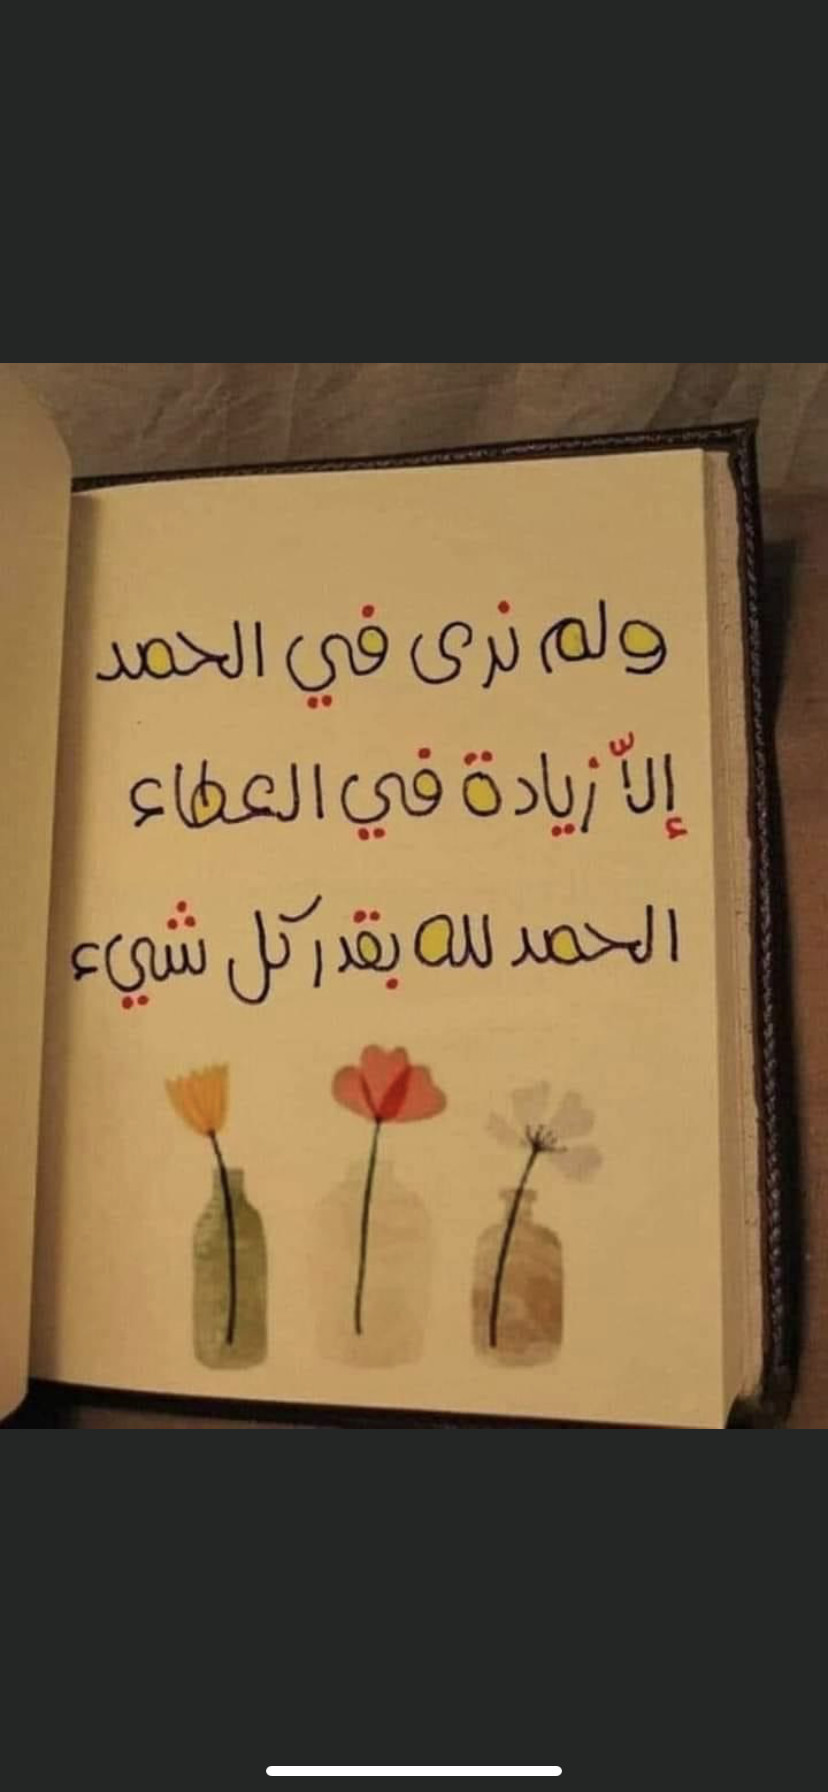 ولم نرى في الحمد
إلاّ زيادة في العطاء
الحمد لله بقدر كل شيء